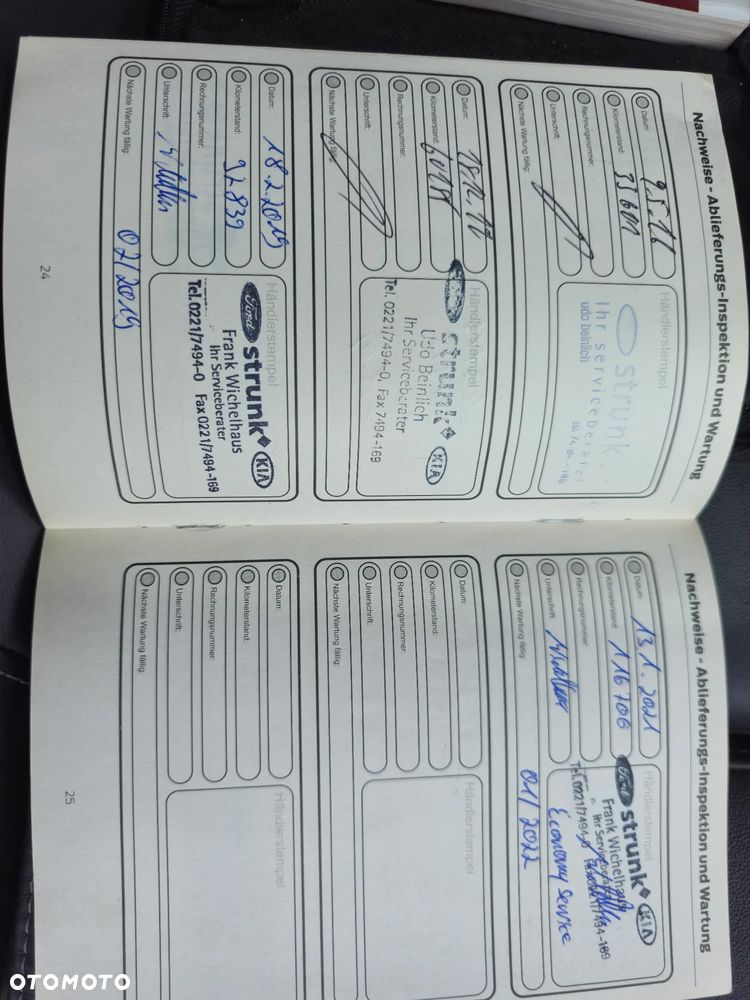 Nachweise - Ablieferungs-Inspektion und Wartung
Datum: 9.5.16
Kilometerstand: 33601
Rechnungsnummer:
Unterschrift:
Nächste Wartung fällig:
Händlerstempel
strunk
Ihr serviceberater
udo beinlich
Datum:
Kilometerstand:
Rechnungsnummer:
Unterschrift:
Nächste Wartung fällig:
Händlerstempel
strunk KIA
Udo Beinlich
Ihr Serviceberater
Tel. 0221/7494-0, Fax 7494-169
Datum: 18.2.2019
Kilometerstand: 92839
Rechnungsnummer:
Unterschrift:
Nächste Wartung fällig: 02/2019
Händlerstempel
Ford strunk KIA
Frank Wichelhaus
Ihr Serviceberater
Tel.0221/7494-0 Fax 0221/7494-169
24
Nachweise - Ablieferungs-Inspektion und Wartung
Datum: 13.1.2021
Kilometerstand: 116706
Rechnungsnummer:
Unterschrift:
Nächste Wartung fällig: 01/2022
Händlerstempel
Ford strunk KIA
Frank Wichelhaus
Ihr Serviceberater
Tel.0221/7494-0
Economy Service
Datum:
Kilometerstand:
Rechnungsnummer:
Unterschrift:
Nächste Wartung fällig:
Händlerstempel
Datum:
Kilometerstand:
Rechnungsnummer:
Unterschrift:
Nächste Wartung fällig:
Händlerstempel
25
OTOMOTO